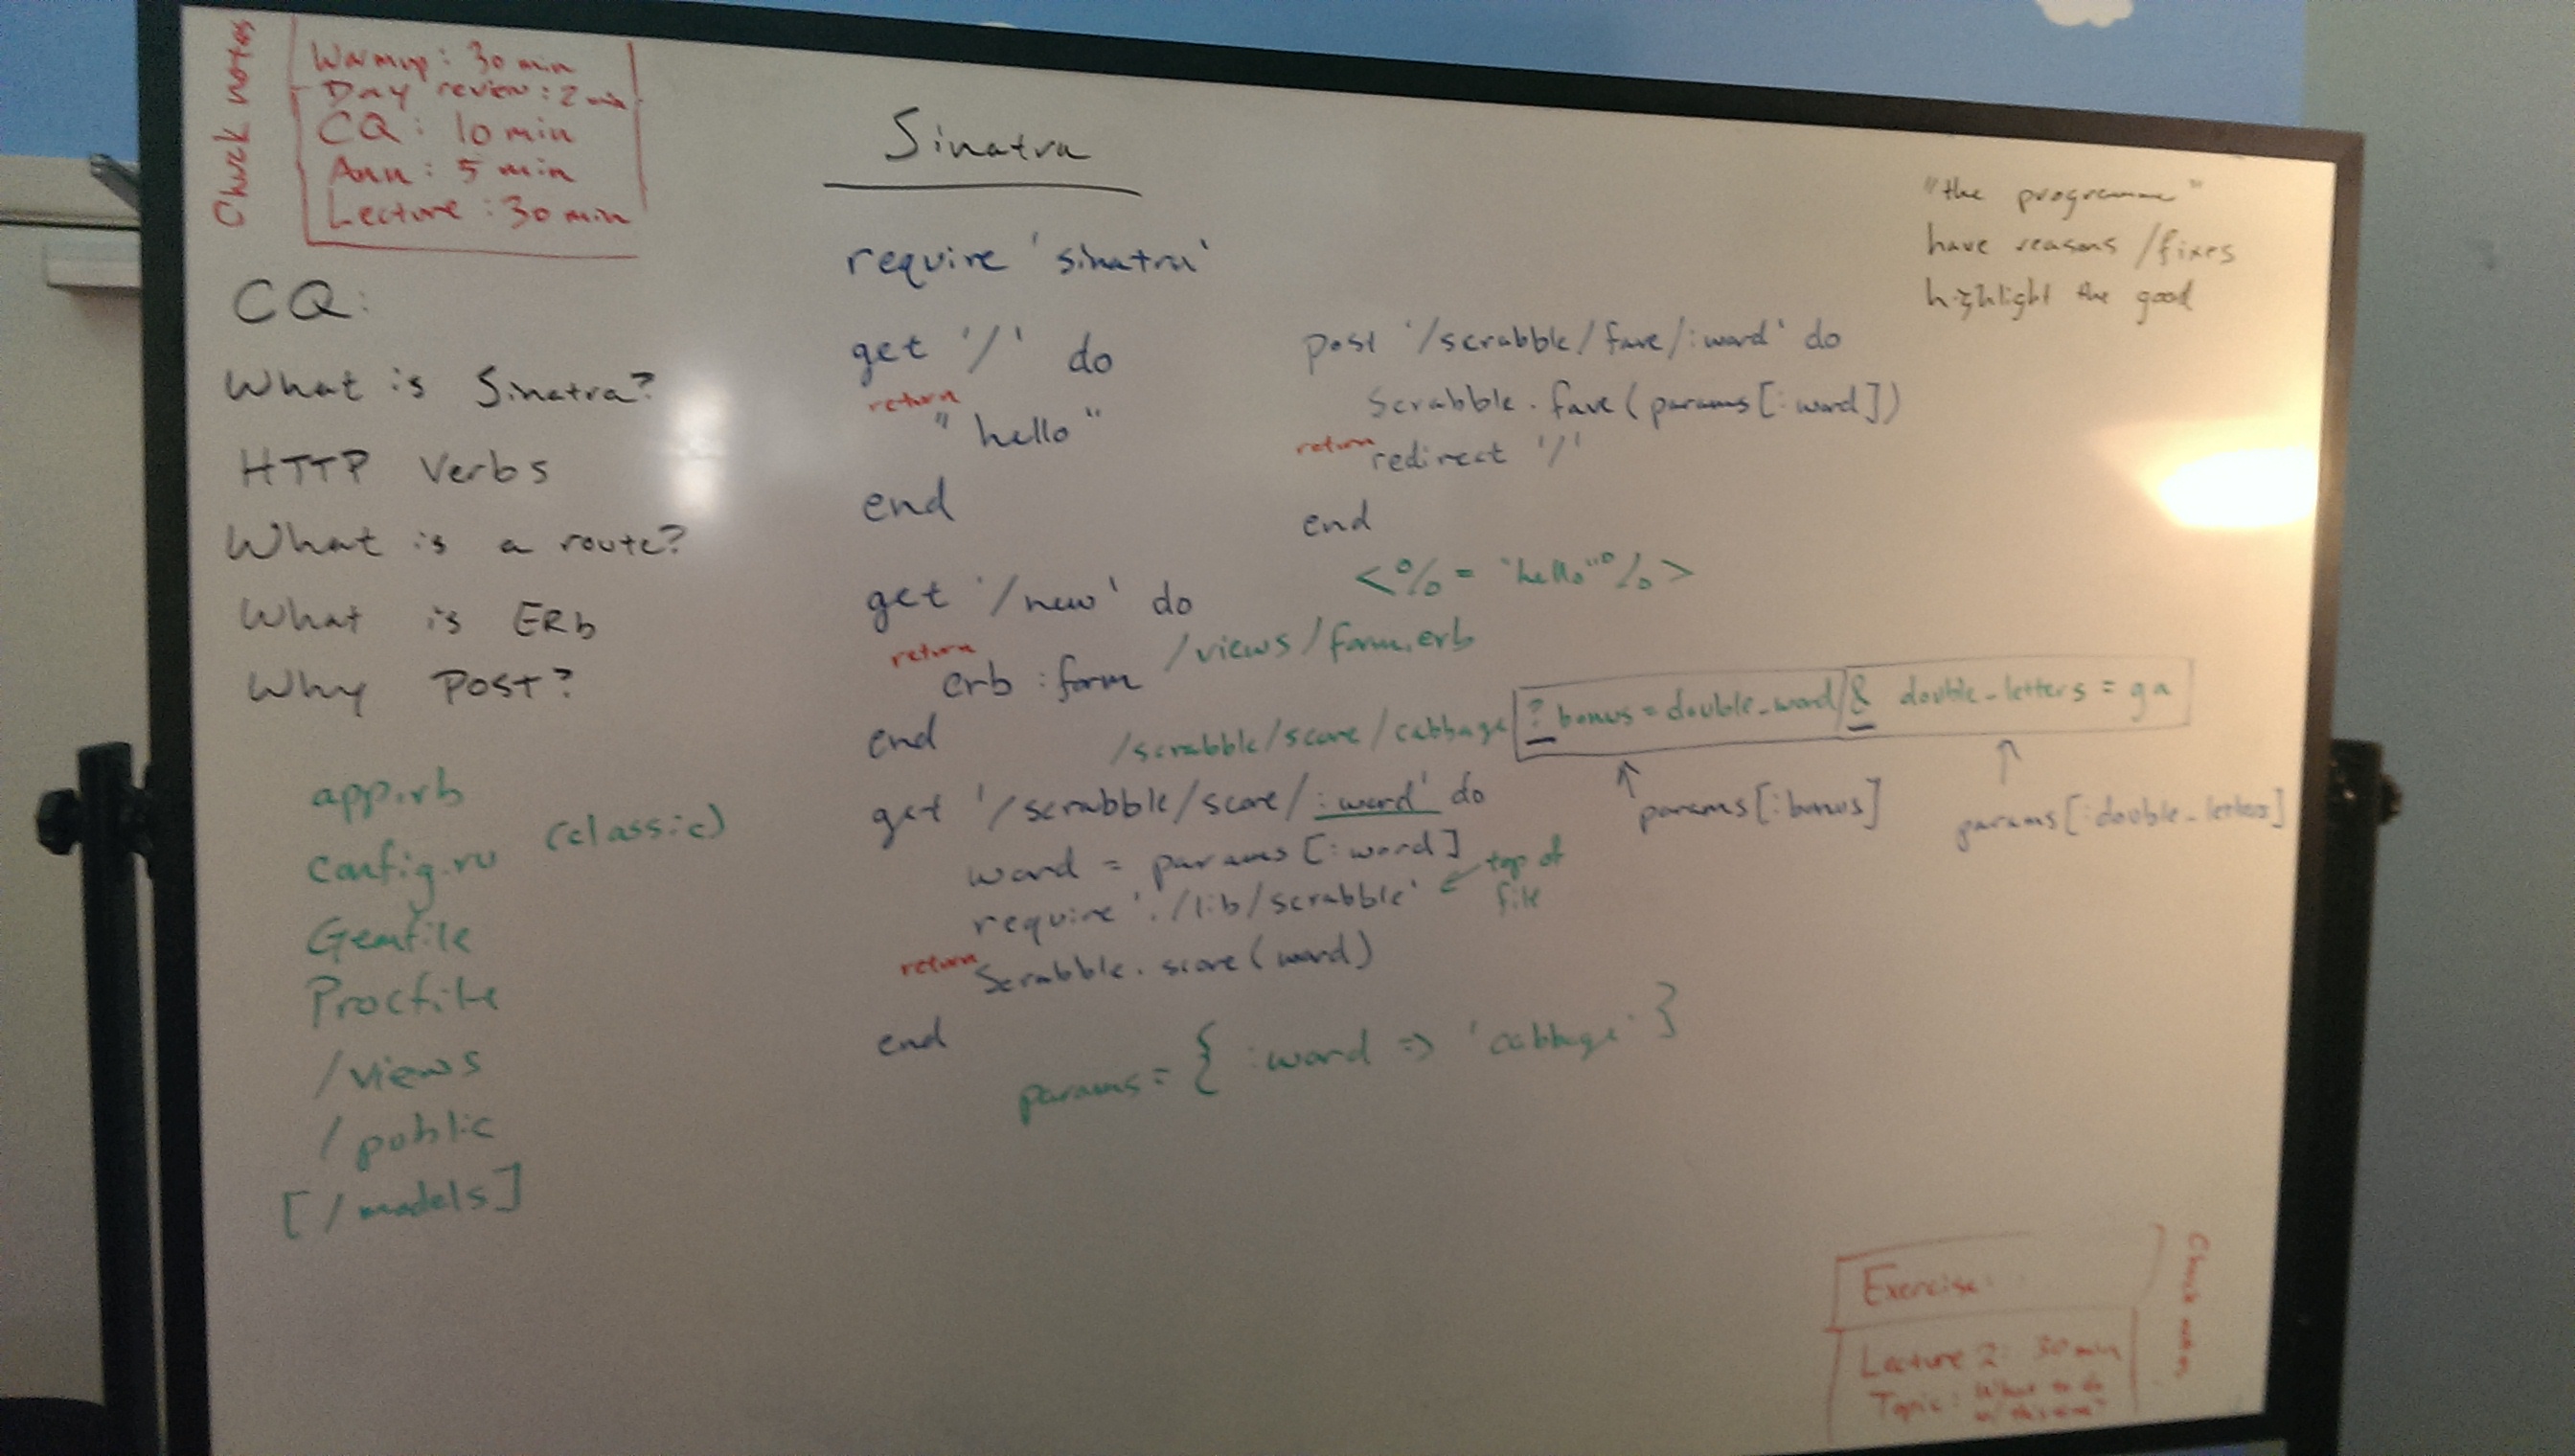 Check notes
Warmup: 30 min
Day review: 2 min
CQ: 10 min
Ann: 5 min
Lecture: 30 min
CQ:
What is Sinatra?
HTTP Verbs
What is a route?
What is ERb
Why POST?
app.rb
config.ru (classic)
Gemfile
Procfile
/views
/public
[/models]
Sinatra
require 'sinatra'
get '/' do
return
"hello"
end
get '/new' do
return
erb :form /views/form.erb
end
/scrabble/score/cabbage?bonus=double_word & double_letters=ga
params[:bonus]
params[:double_letters]
get '/scrabble/score/:word' do
word = params[:word]
require './lib/scrabble' top of
file
return Scrabble.score(word)
end
params = { :word => 'cabbage' }
post '/scrabble/fave/:word' do
Scrabble.fave(params[:word])
return redirect '/'
end
<%= "hello" %>
"the programme"
have reasons/fixes
highlight the good
Exercise:
Lecture 2: 30 min
Topic: What to do
w/ this time?
Check notes